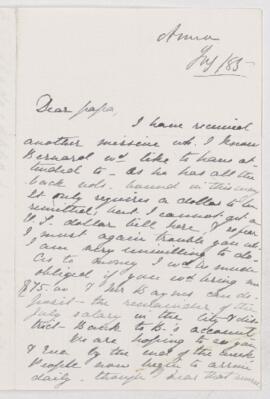 July /85
Dear papa,
I have received
another missive wh. I know
Bernard wd like to have at-
tended to - as he has all the
back vols. bound in this way
It only requires a dollar to be
remitted, but I cannot get a
U.S. dollar bill here, & so
I must again trouble you wh.
I am very unwilling to do.
As to money I wd be much
obliged if you wd bring me
$75. &
the remainder of the
July salary in the City & Dis-
trict Bank to B.'s account
We are hoping to see you
& Eva by the end of the week
People now begin to arrive
daily, though I hear that